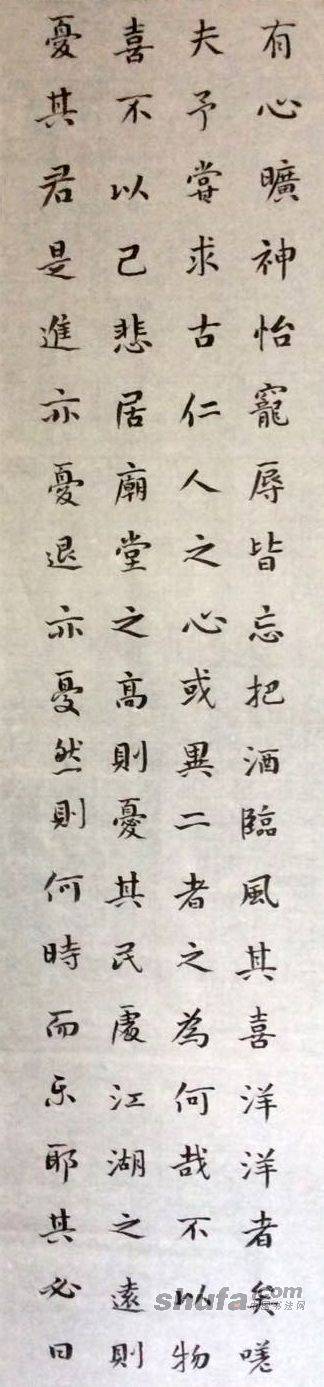 有心曠神怡寵辱皆忘把酒臨風其喜洋洋者矣嗟
夫予嘗求古仁人之心或異二者之為何哉不以物
喜不以己悲居廟堂之高則憂其民處江湖之遠則
憂其君是進亦憂退亦憂然則何時而乐耶其必曰
shufa.com
中国书法网